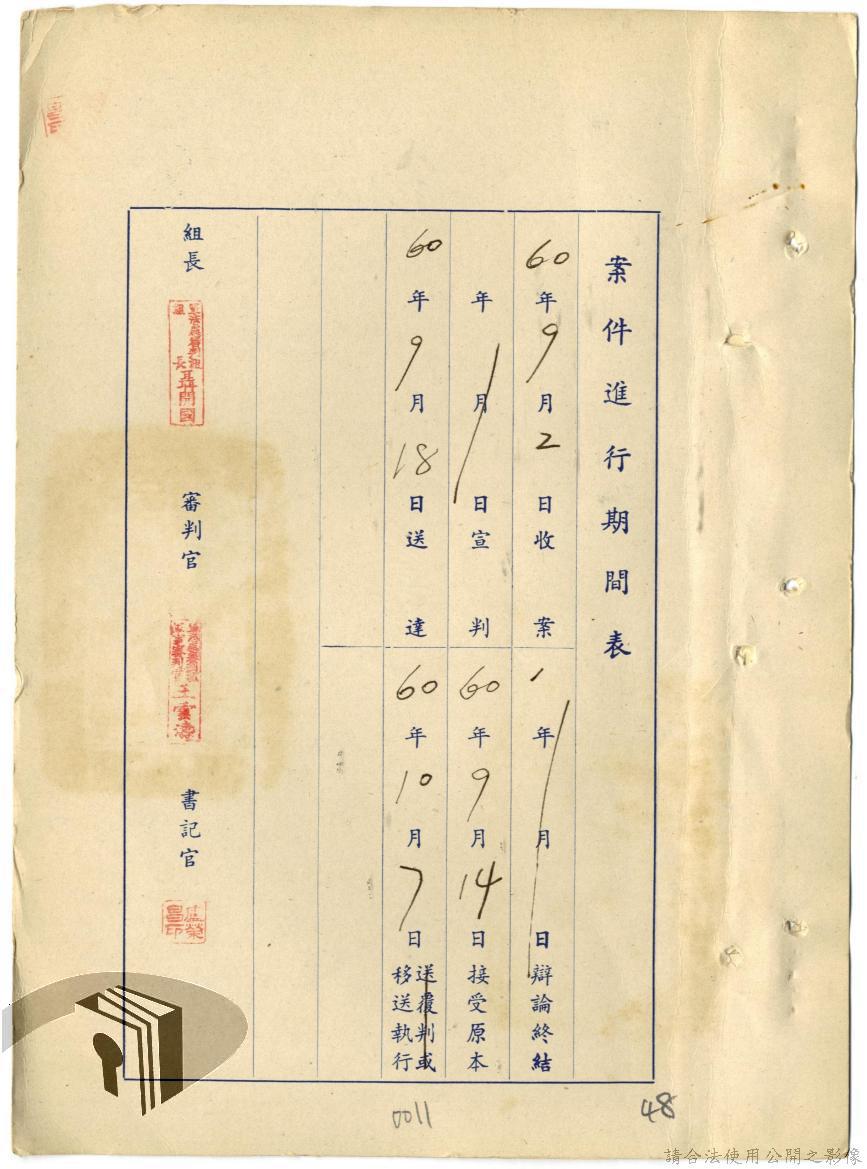 案件進行期間表
60年9月2日收案
年月日辯論終結
年月日宣判
60年9月14日接受原本
60年9月18日送達
60年10月7日送覆判或移送執行
組長
組長聶開國
審判官
王雲濤
書記官
0011
48
請合法使用公開之影像